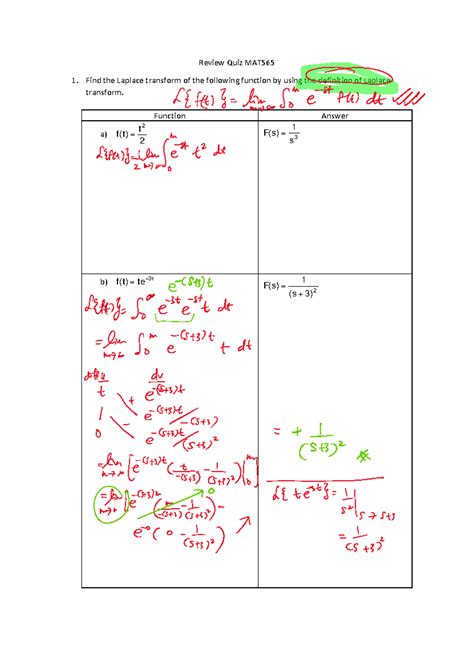 Review Quiz MAT565
1. Find the Laplace transform of the following function by using the definition of Laplace
transform.
L{f(t)} = lim m→∞ ∫₀ᵐ e^-st f(t) dt
Function
Answer
a) f(t) = t²/2
F(s) = 1/s³
L{f(t)} = 1/2 lim m→∞ ∫₀ᵐ e^-st t² dt
b) f(t) = te^-3t
e^-(s+3)t
F(s) = 1/(s + 3)²
L{f(t)} = ∫₀^∞ e^-3t e^-st t dt
= lim m→∞ ∫₀ᵐ e^-(s+3)t t dt
u dv
t + e^-(s+3)t
1 - e^-(s+3)t/-(s+3)
0 e^-(s+3)t/(s+3)²
= lim m→∞ [e^-(s+3)t (t/-(s+3) - 1/(s+3)²)]₀ᵐ
= lim m→∞ [e^-(s+3)m (m/-(s+3) - 1/(s+3)²) 0
-
e^-0 (0 - 1/(s+3)²)
= + 1/(s+3)²
L{te^-3t} = 1/s² | s→s+3
= 1/(s+3)²